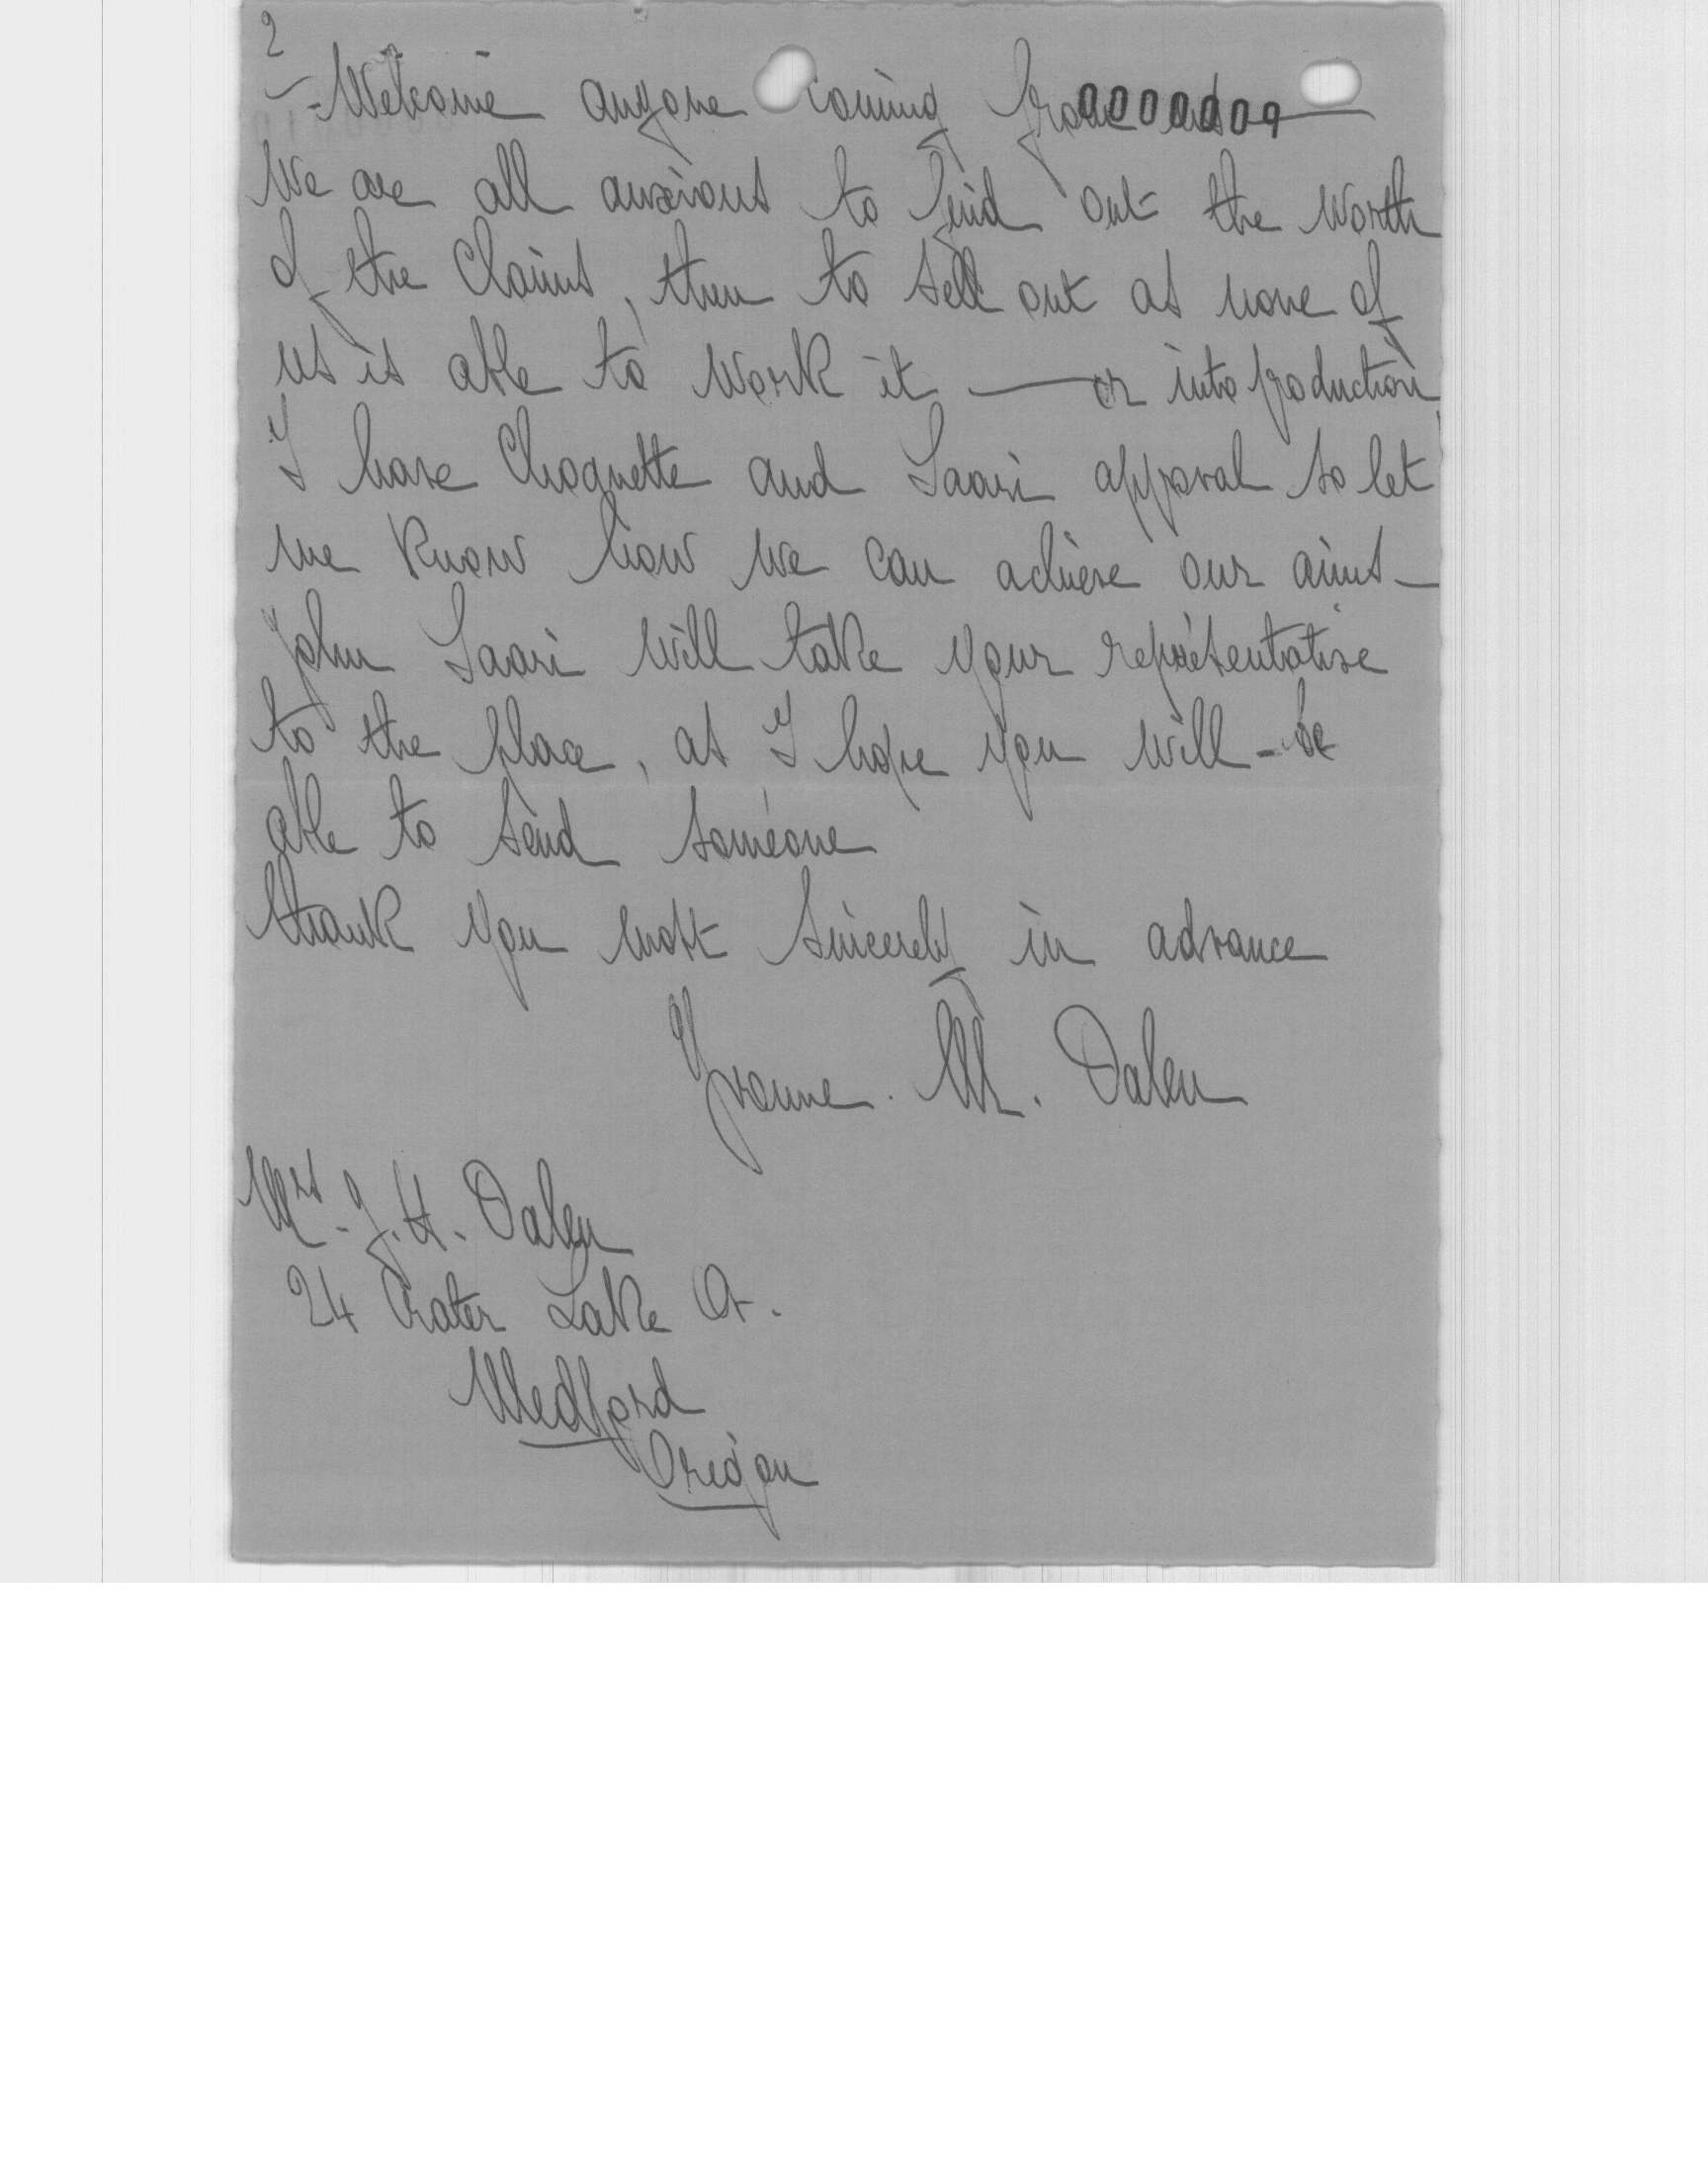 2
- Welcome anyone coming from us —
0000009
We are all anxious to find out the worth
of the Claims, then to sell out as none of
us is able to work it — or into production
I have Choquette and Saari approval so let
me know how we can achieve our aims —
John Saari will take your representative
to the place, as I hope you will - be
able to send someone
thank you most sincerely in advance
Yvonne. M. Dalen
Mrs. J. H. Dalen
24 Crater Lake Av.
Medford
Oregon